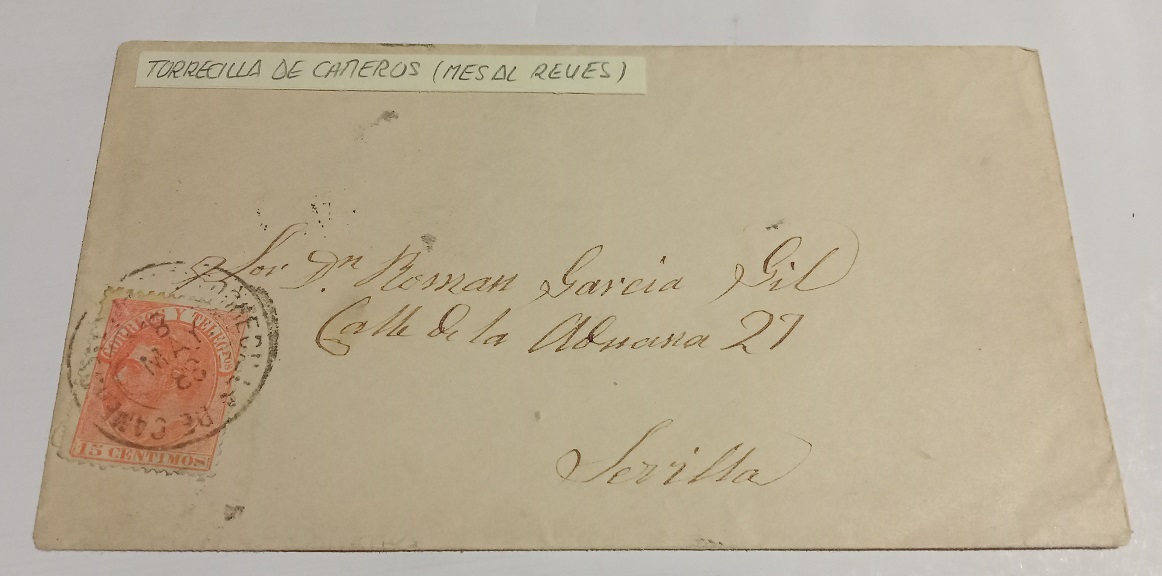 TORRECILLA DE CAMEROS (MES AL REVES)
Sor Dn Roman Garcia Gil
Calle de la Aduana 27
Sevilla
CORREOS Y TELEGFOS
TORRECILLA DE CAMEROS
MAY
15 CENTIMOS